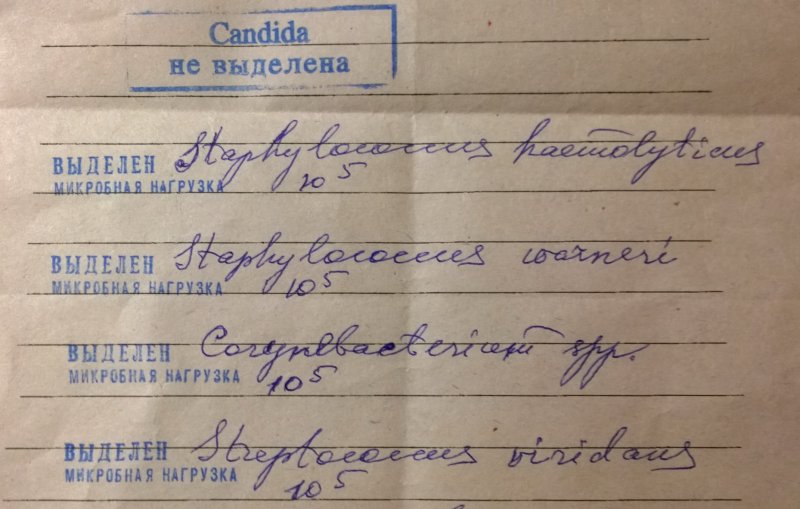 Candida
не выделена
ВЫДЕЛЕН Staphylococcus haemolyticus
МИКРОБНАЯ НАГРУЗКА 10⁵
ВЫДЕЛЕН Staphylococcus warneri
МИКРОБНАЯ НАГРУЗКА 10⁵
ВЫДЕЛЕН Corynebacterium spp.
МИКРОБНАЯ НАГРУЗКА 10⁵
ВЫДЕЛЕН Streptococcus viridans
МИКРОБНАЯ НАГРУЗКА 10⁵